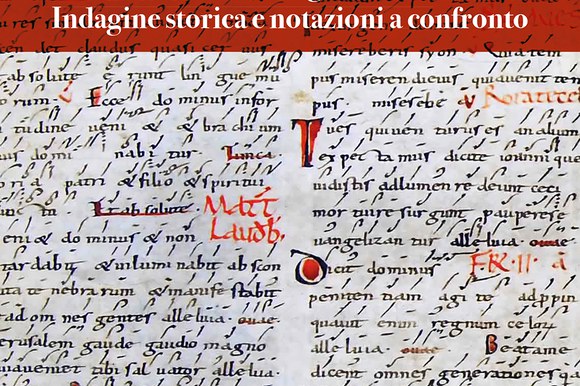 Indagine storica e notazioni a confronto
det claudus quasi cer uus
absolute erunt lin gue mu
rum. Ecce do minus in for
titudine ueni & & bra chi um
uus domi nabi tur.
ori a patri & filio & spiritui
Et absolute. Matt
Laudb;
eni& do minus & non
tar dabit & inlumi nabit abscon
ita te nebra rum & manife stabit
ad om nes gentes alle luia. euae.
erusalem gaude gaudio magno
uaueniet tibi sal uator alle luia.
misereberis syon Quia tem
pus miseren di eius quia uenit tem
pus. misere be V Rorate ce
Tu es qui uen turus es an alium
ex pec ta mus dicite ioanni que
uidistis ad lumen re deunt ceci
mor tui re sur gunt pauperes e
uangelizan tur alle luia. euae
F.R. II. a
Dicit dominus
peniten tiam agi te adppin
quauit enim regnum ce lor
alle luia. euae Beatam e
dicent omnes generationes qa